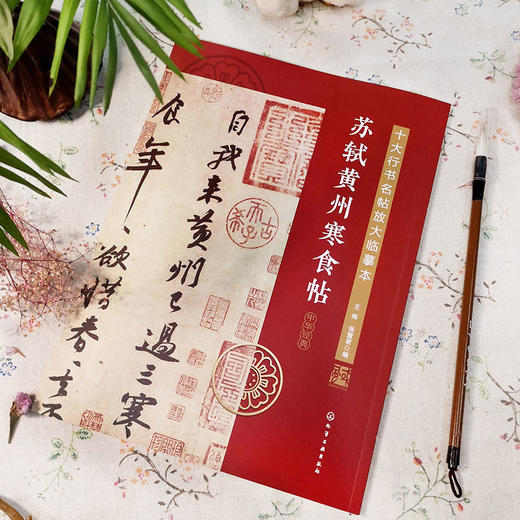 十大行书名帖放大临摹本
苏轼黄州寒食帖
中华经典
编
化学工业出版社
自我来黄州已过三寒
食年年欲惜春春去